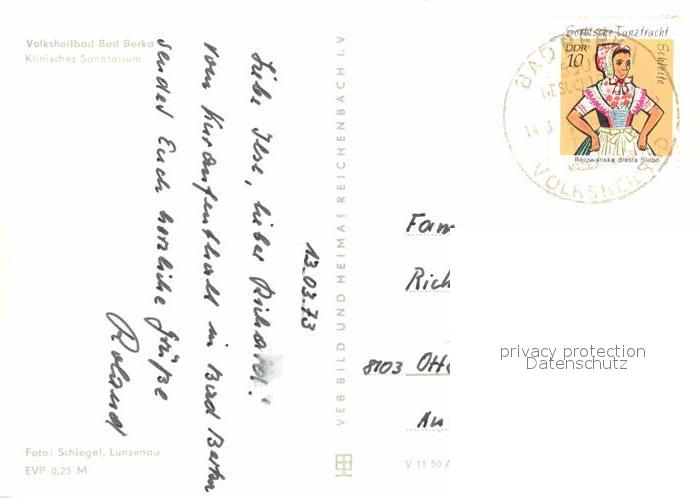 Volksheilbad Bad Berka
Klinisches Sanatorium
13.03.73
Liebe Ilse, lieber Richard!
vom Kuraufenthalt in Bad Berka
sendet Euch herzliche Grüße
Roland
Foto: Schlegel, Lunzenau
EVP 0,25 M
VEB BILD UND HEIMAT REICHENBACH I. V
V 11 50 A
Sorbische Tanztracht
Schleife
DDR
10
Rejowańska drasta Slepo
BAD BERKA
14.3.
VOLKSHEILBAD
Fam
Rich
8103 Otte
An
privacy protection
Datenschutz